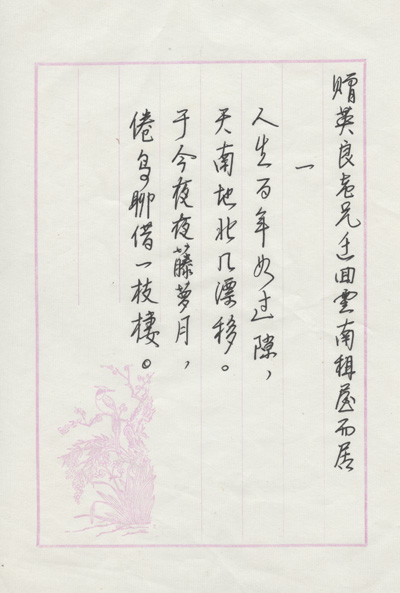 赠英良老兄迁回雲南租屋而居
一
人生百年如过隙，
天南地北几漂移。
于今夜夜藤萝月，
倦鸟聊借一枝棲。